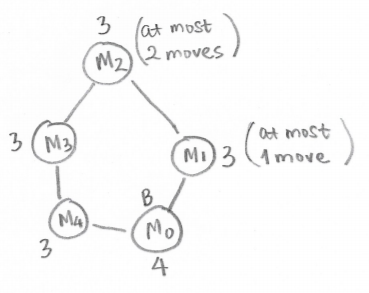 3 (at most
2 moves)
M2
3 M3
M1 3 (at most
1 move)
M4
3
B
M0
4